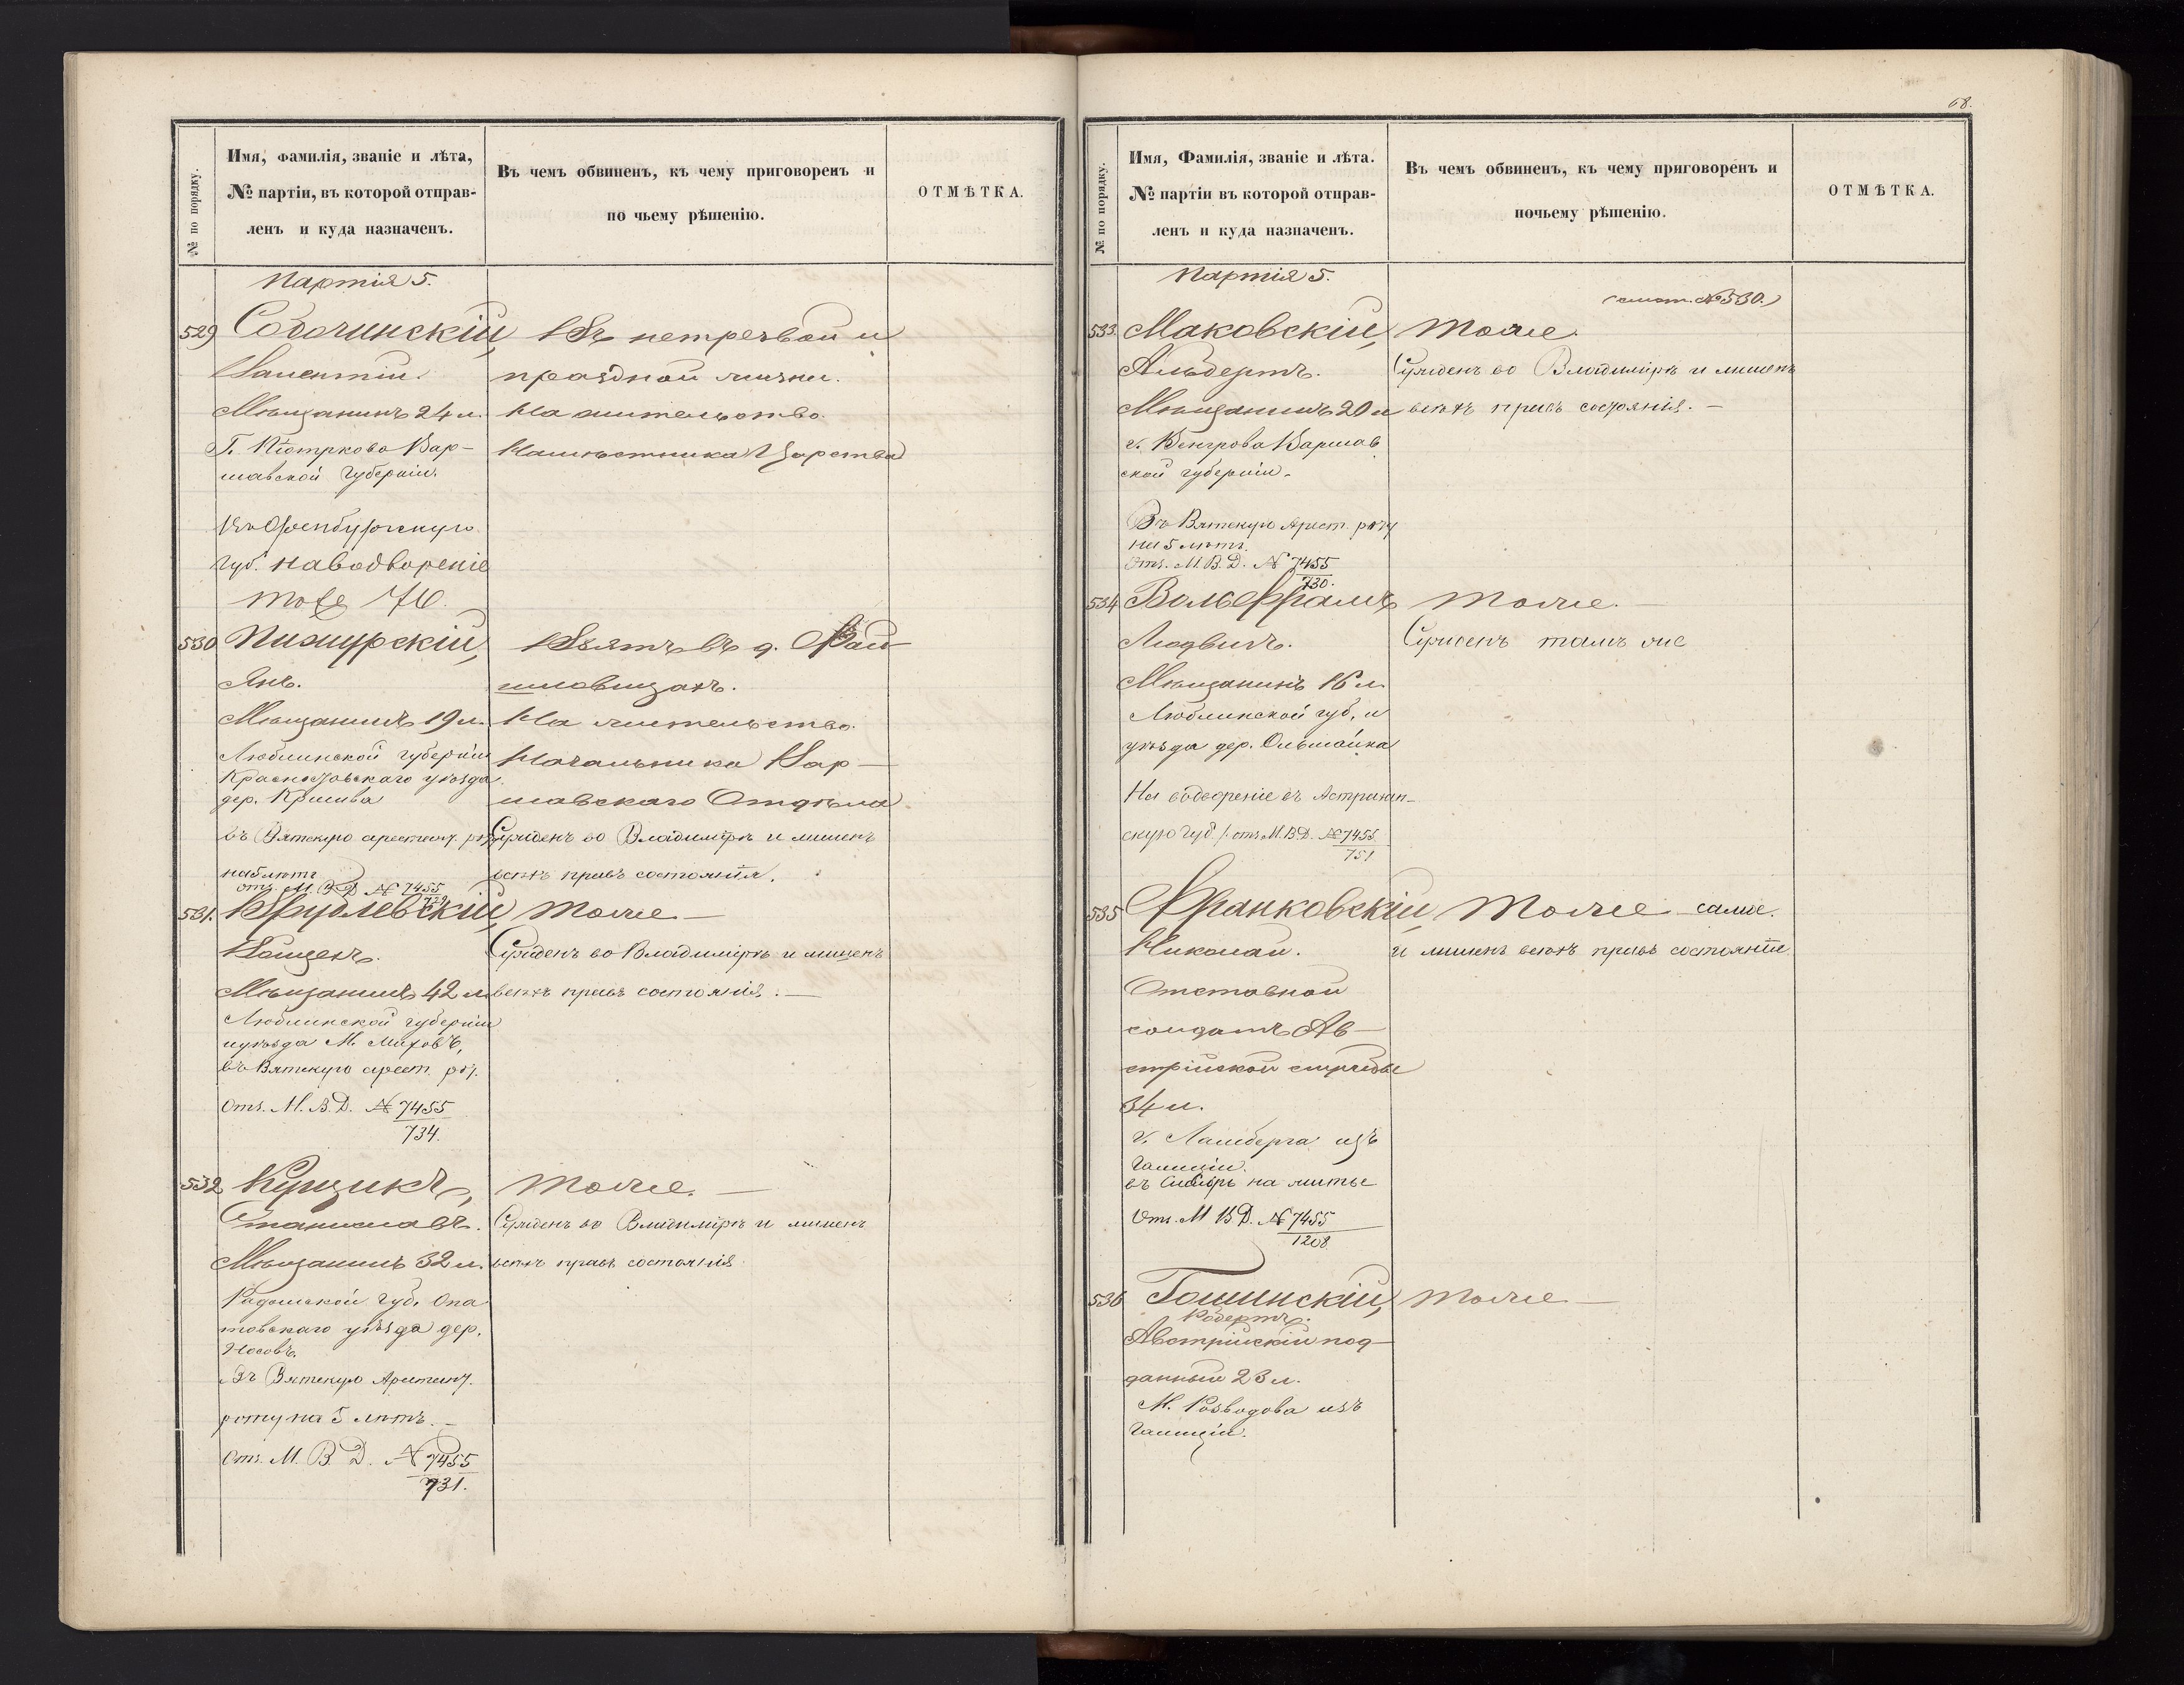 № по порядку.
Имя, фамилія, званіе и лѣта,
№ партіи, въ которой отправ-
ленъ и куда назначенъ.
Въ чемъ обвиненъ, къ чему приговоренъ и
по чьему рѣшенію.
ОТМѢТКА.
Партія 5.
529 Собочинскій,
Валентій.
Мѣщанинъ 24 л.
Г. Піотркова Вар-
шавской Губерніи.
Въ Оренбургскую
губ. на водвореніе
тоже 76.
Въ нетрезвой и
праздной жизни.
На жительство.
Намѣстника Царства
530 Пижурскій,
Янъ.
Мѣщанинъ 19 л.
Люблинской губерніи
Красноставскаго уѣзда
дер.
въ Вятскую арестант. рот
на 5 лѣтъ
отз. М. В. Д. № 7455
729
Взятъ въ д.
На жительство.
Начальника Вар-
шавскаго Отдѣла.
Сужденъ во Владимірѣ и лишенъ
всѣхъ правъ состоянія.
531. Врублевскій,
Войцехъ.
Мѣщанинъ 42 л.
Люблинской губерніи
и уѣзда М.
въ Вятскую арест. рот.
Отз. М. В. Д. № 7455
734.
Тоже —
Сужденъ во Владимірѣ и лишенъ
всѣхъ правъ состоянія. —
532 Кущикъ,
Станиславъ.
Мѣщанинъ 32 л.
Радомской губ. Опа
товскаго уѣзда дер.
Носовъ.
Въ Вятскую Арестант.
роту на 5 лѣтъ. —
Отз. М. В. Д. № 7455
731.
Тоже. —
Сужденъ во Владимірѣ и лишенъ
всѣхъ правъ состоянія
68.
№ по порядку.
Имя, Фамилія, званіе и лѣта.
№ партіи въ которой отправ-
ленъ и куда назначенъ.
Въ чемъ обвиненъ, къ чему приговоренъ и
почьему рѣшенію.
ОТМѢТКА.
Партія 5.
533. Маковскій,
Альбертъ.
Мѣщанинъ 20 л
г. Венгрова Варшав
ской губерніи.
Въ Вятскую Арест. роту
на 5 лѣтъ.
Отз. М. В. Д. № 7455
730.
(смот. № 530.)
Тоже.
Сужденъ во Владимірѣ и лишенъ
всѣхъ правъ состоянія. —
534 Вольфрамъ
Людвигъ.
Мѣщанинъ 16 л.
Люблинской губ. и
уѣзда дер.
На водвореніе въ Астрахан-
скую губ. отз. М. В. Д. № 7455
751
Тоже. —
Сужденъ тамъ же
535 Франковскій,
Николай.
Отставной
солдатъ Ав-
стрійской службы
34 л.
г. Ламберга изъ
Галиціи.
въ Сибирь на житье
Отз. М. В. Д. № 7455
1208
Тоже самое.
и лишенъ всѣхъ правъ состоянія
536 Гошинскій,
Робертъ.
Австрійскій под-
данный 23 л.
М. Розводова изъ
Галиціи.
Тоже —